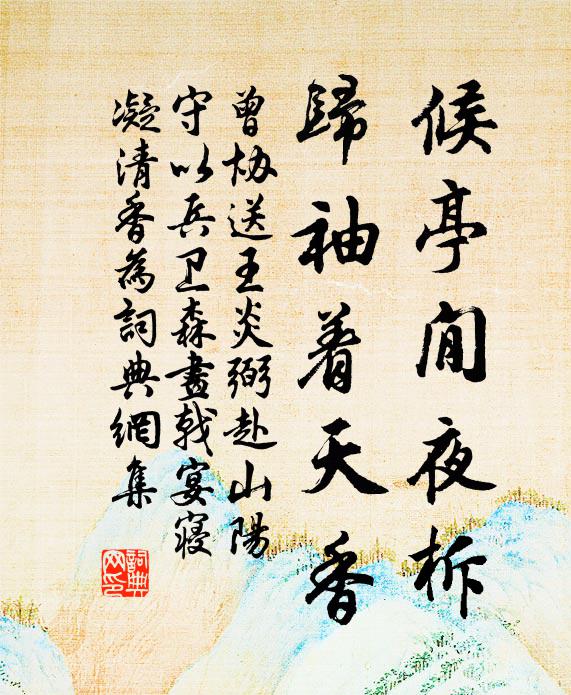 候亭閒夜柝
歸袖着天香
曾协送王炎弼赴山陽
守以兵卫森畫戟宴寝
凝清香為詞典網集
詞典网印